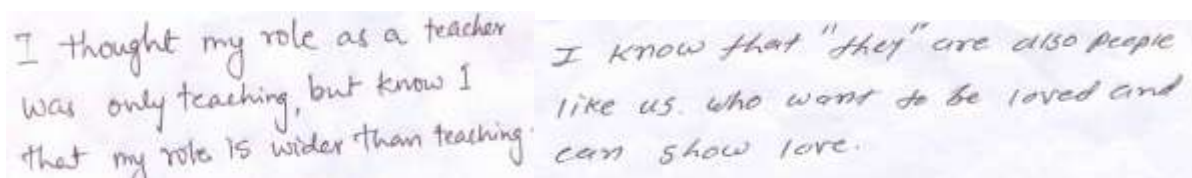 I thought my role as a teacher
was only teaching, but know I
that my role is wider than teaching.
I know that "they" are also people
like us. who want to be loved and
can show love.